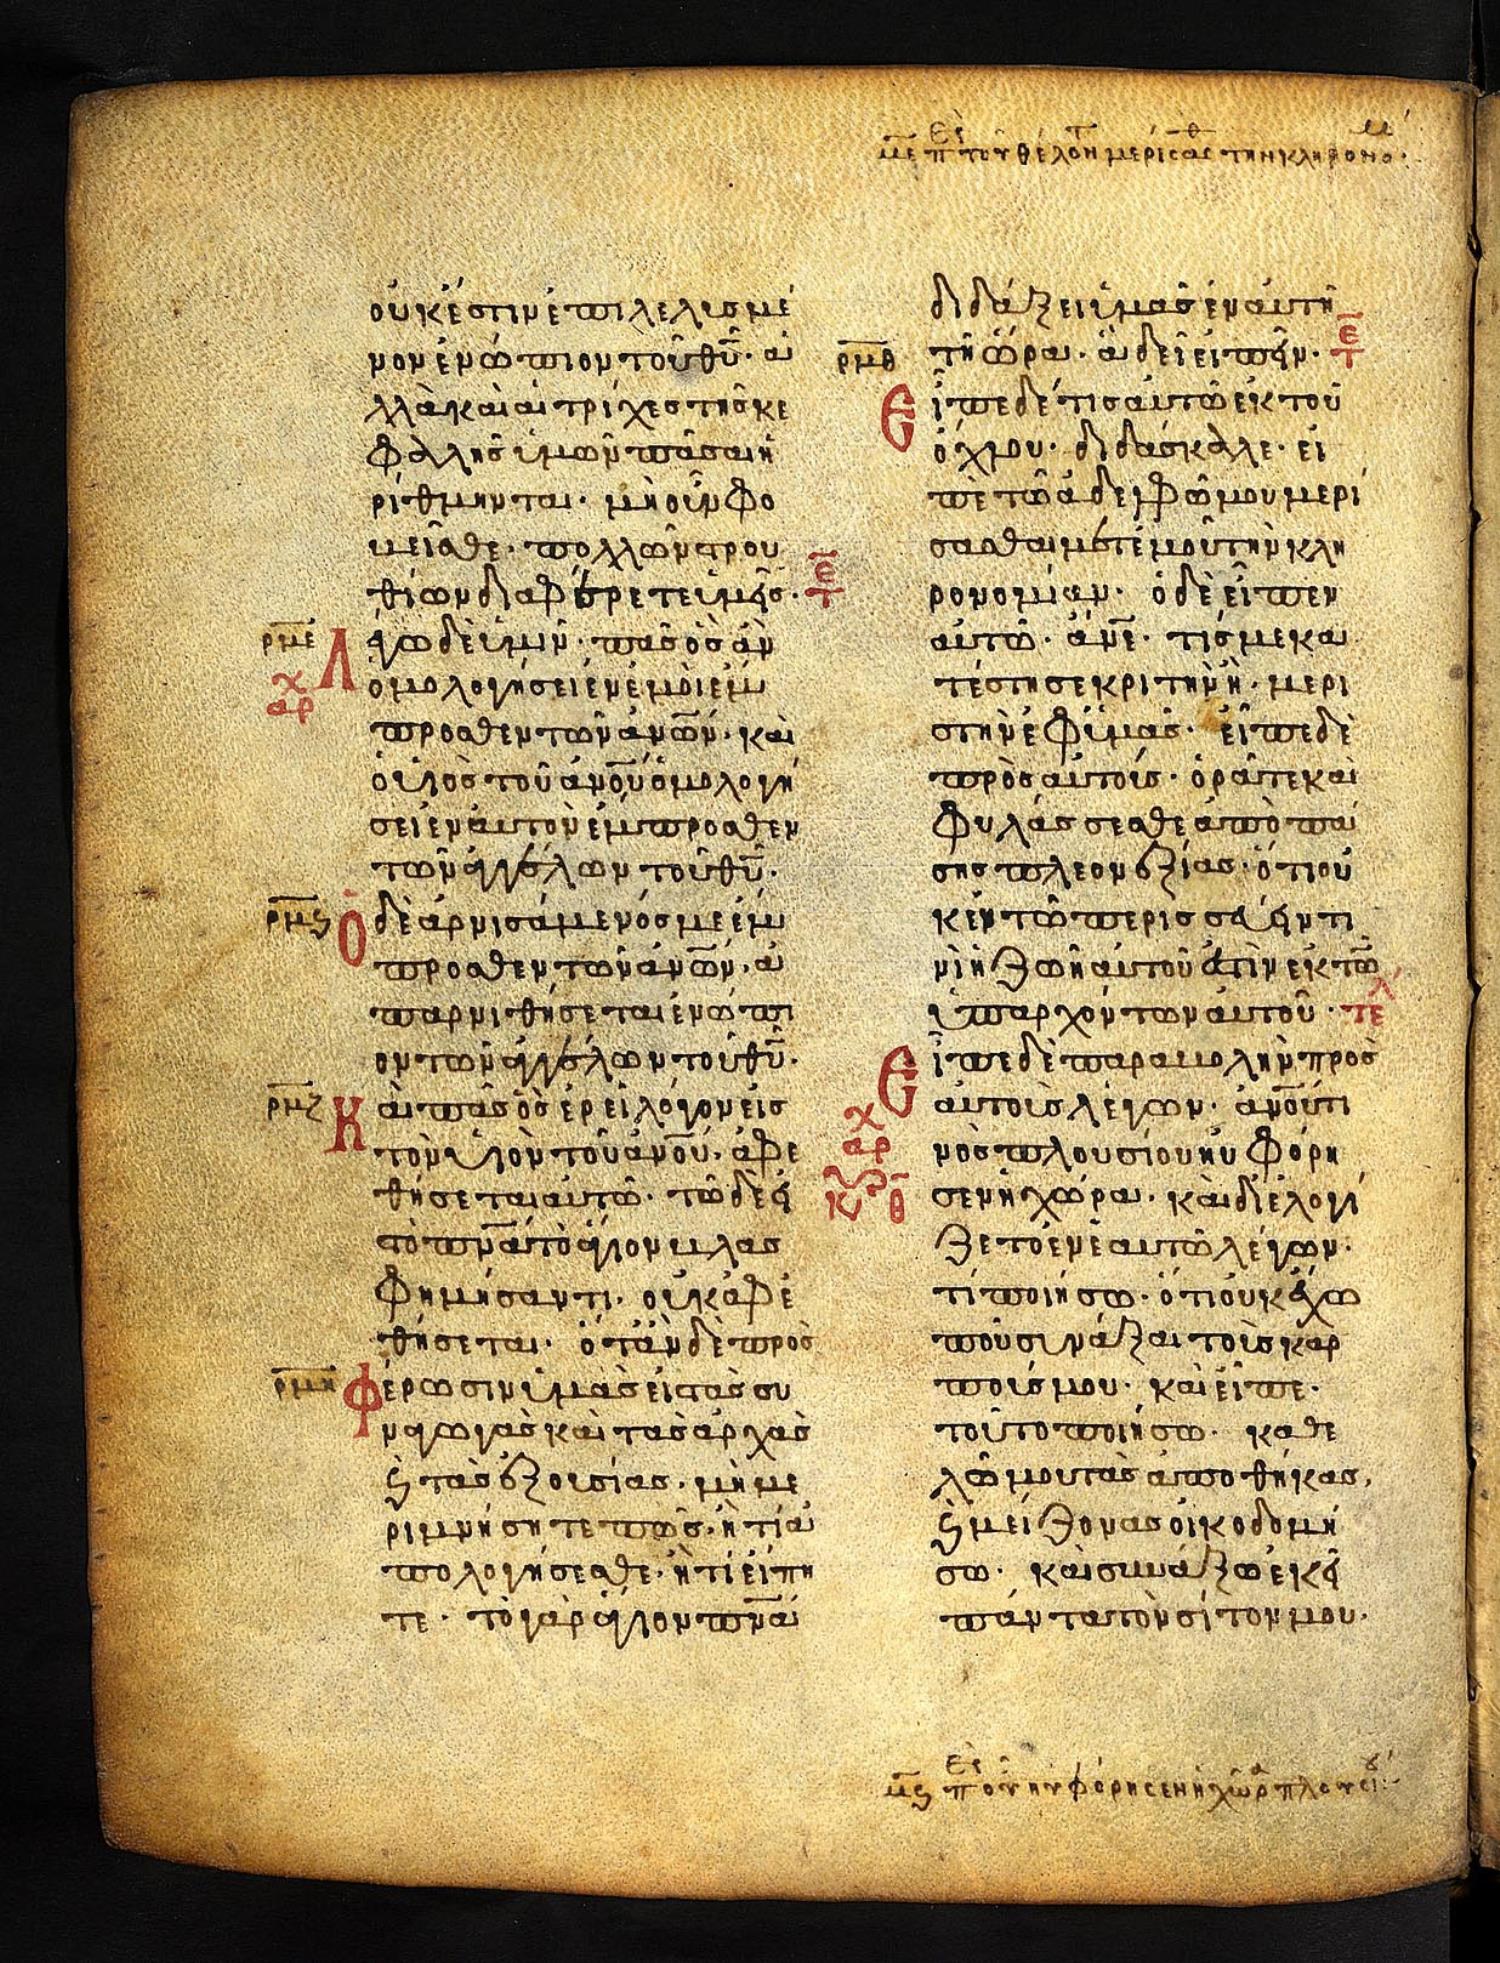 με π Ερ τοῦ θέλοντ μερίσασθ τὴν κληρονο μ
οὐκ ἔστιν ἐπιλελισμέ
νον ἐνώπιον τοῦ θῦ· ἀ
λλὰ καὶ αἱ τρίχες τῆς κε
φαλλῆς ὑμῶν πᾶσαι ἠ
ρίθμηνται· μὴ οὖν φο
βεῖσθε· πολλῶν στρου
θίων διαφέρετε ὑμεῖς·
ετ
ρμε
Λέγω δὲ ὑμῖν· πᾶς ὃς ἂν
χ
αρ
ὁμολογήσει ἐν ἐμοὶ ἔμ
προσθεν τῶν ἀνῶν· καὶ
ὁ υἱὸς τοῦ ἀνοῦ ὁμολογή
σει ἐν αὐτὸν ἔμπροσθεν
τῶν ἀγγέλων τοῦ θῦ·
ρμς
Ὁ δὲ ἀρνισάμενός με ἔμ
προσθεν τῶν ἀνῶν· ἀ
παρνιθήσεται ἐνώπι
ον τῶν ἀγγέλων τοῦ θῦ·
ρμζ
Καὶ πᾶς ὃς ἐρεῖ λόγον εἰς
τὸν υἱὸν τοῦ ἀνοῦ· ἀφε
θήσεται αὐτῶ· τῶ δὲ εἰ
σ τὸ πνα τὸ ἅγιον βλας
φημήσαντι· οὐκ ἀφε
θήσεται· ὅταν δὲ προσ
ρμη
Φέρωσιν ὑμᾶς εἰς τὰς συ
ναγωγὰς καὶ τὰς ἀρχὰς
ϛ τὰς ἐξουσίας· μὴ με
ριμνήσητε πῶς· ἢ τί ἀ
πολογήσεσθε· ἢ τί εἴπη
τε· τὸ γὰρ ἅγιον πνα
διδάξει ὑμᾶς ἐν αὐτῆ
ρμθ
τῆ ὥρα· ἃ δεῖ εἰπεῖν·
ετ
Εἶπε δέ τις αὐτῶ ἐκ τοῦ
ὄχλου· διδάσκαλε· εἰ
πὲ τῶ ἀδελφῶ μου μερί
σασθαι μετ ἐμοῦ τὴν κλη
ρονομίαν· ὁ δὲ εἶπεν
αὐτῶ· ἄνε· τίς με κα
τέστησε κριτὴν ἢ· μερι
στὴν ἐφ ὑμᾶς· εἶπε δὲ
πρὸς αὐτοὺς· ὁρᾶτε καὶ
φυλάσσεσθε ἀπὸ πά
σης πλεονεξίας· ὅτι οὐ
κ ἐν τῶ περισσεύειν τι
νὶ ἡ ζωὴ αὐτοῦ ἐστὶν ἐκ τῶ
ὑπαρχόντων αὐτοῦ· τελ
Εἶπε δὲ παραβολὴν προς
χ
αρ
αὐτοὺς λέγων· ἀνοῦ τι
νὸς πλουσίου ηὐφόρη
κυ θ
σεν ἡ χώρα· καὶ διελογί
ζετο ἐν ἑαυτῶ λέγων·
τί ποιήσω· ὅτι οὐκ ἔχω
ποῦ συνάξαι τοὺς καρ
πούς μου· καὶ εἶπε·
τοῦτο ποιήσω· καθε
λῶ μου τὰς ἀποθήκας,
ϛ μείζονας οἰκοδομή
σω· καὶ συνάξω ἐκεῖ
πάντα τὸν σίτον μου·
μς π Ερ οὗ ηὐφόρησεν ἡ χώρ πλουσί